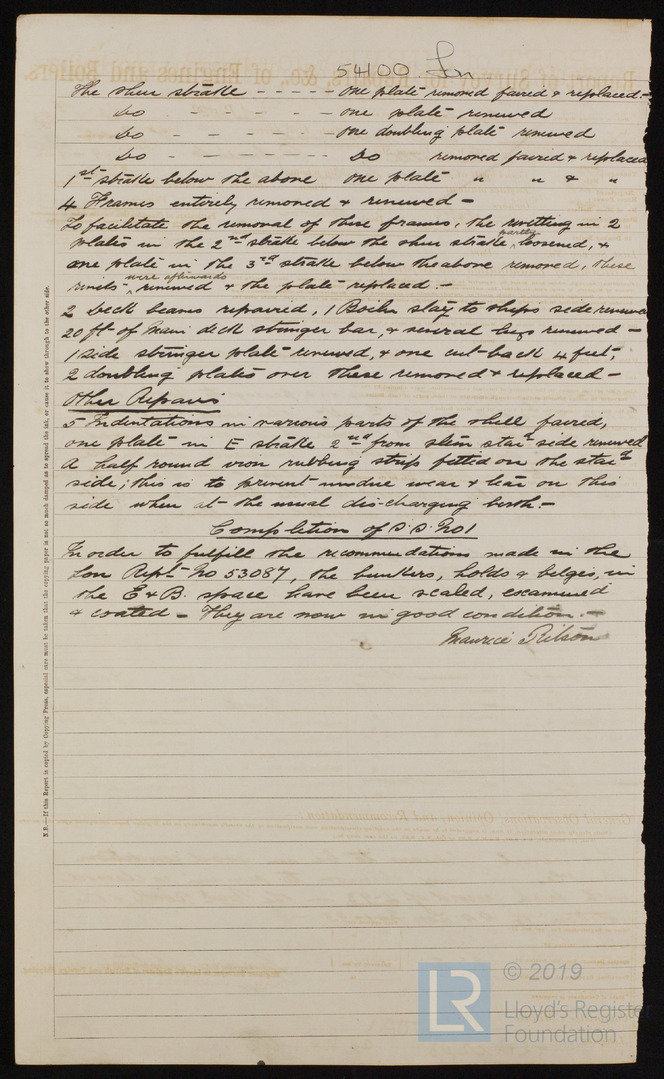 54100 Lon
The sheer strake - - - - - one plate removed faired & replaced.-
Do - - - - - - one plate renewed
Do - - - - - - one doubling plate renewed
Do - - - - - - Do removed faired & replaced
1st strake below the above one plate " " & "
4 Frames entirely removed & renewed -
To facilitate the removal of these frames, the rivetting in 2
plates in the 2nd strake below the sheer strake partly loosened, &
one plate in the 3rd strake below the above removed, these
rivets were afterwards renewed & the plate replaced.-
2 deck beams repaired, 1 stay to ships side renewed
20 ft of main deck stringer bar, & several lugs renewed -
1 side stringer plate renewed, & one cut-back 4 feet,
2 doubling plates over these removed & replaced -
Other Repairs
5 Indentations in various parts of the shell faired,
one plate in E strake 2nd from stem star'd side renewed
A half round iron rubbing strip fitted on the star'd
side; this is to prevent undue wear & tear on this
side when at the usual discharging berth.-
Completion of S.S. No 1
In order to fulfill the recommendations made in the
Lon Rept No 53087, the bunkers, holds & bilges, in
the E & B. space have been scaled, examined
& coated - They are now in good condition.-
Maurice
N.B.—If this Report is copied by Copying Press, especial care must be taken that the copying paper is not so much damped as to spread the ink, or cause it to show through to the other side.
LR
© 2019
Lloyd's Register
Foundation